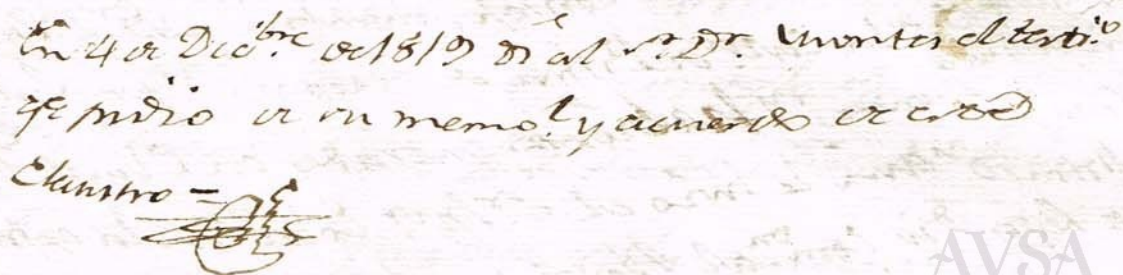 En 4 de Dicᵇʳᵉ de 1819 di al Sʳ Dʳ Montes el testⁱᵒ
qᵉ pidio de su memoˡ y acuerdo de este
Claustro =
AVSA